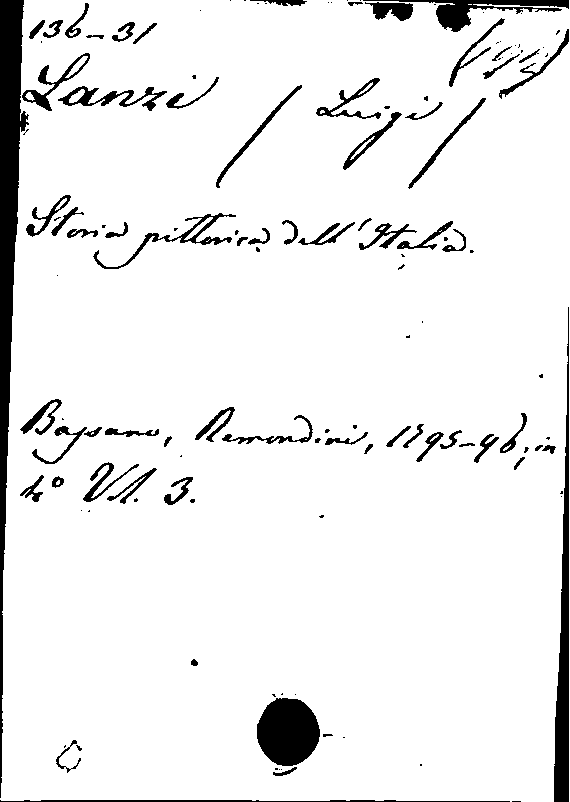 136-31
Lanzi / Luigi /
Storia pittorica dell'Italia.
Bassano, Remondini, 1795-96; in
4° Vol. 3.